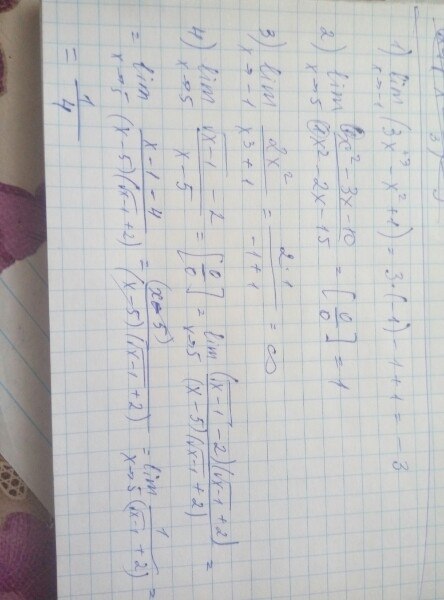 1) lim x→-1 (3x³ - x² + 1) = 3·(-1) - 1 + 1 = -3
2) lim x→5 x² - 3x - 10 / x² - 2x - 15 = [0/0] = 1
3) lim x→-1 2x² / x³ + 1 = 2·1 / -1 + 1 = ∞
4) lim x→5 √x-1 - 2 / x - 5 = [0/0] = lim x→5 (√x-1 - 2)(√x-1 + 2) / (x - 5)(√x-1 + 2) =
= lim x→5 x - 1 - 4 / (x - 5)(√x-1 + 2) = (x - 5) / (x - 5)(√x-1 + 2) = lim x→5 1 / (√x-1 + 2) =
= 1/4